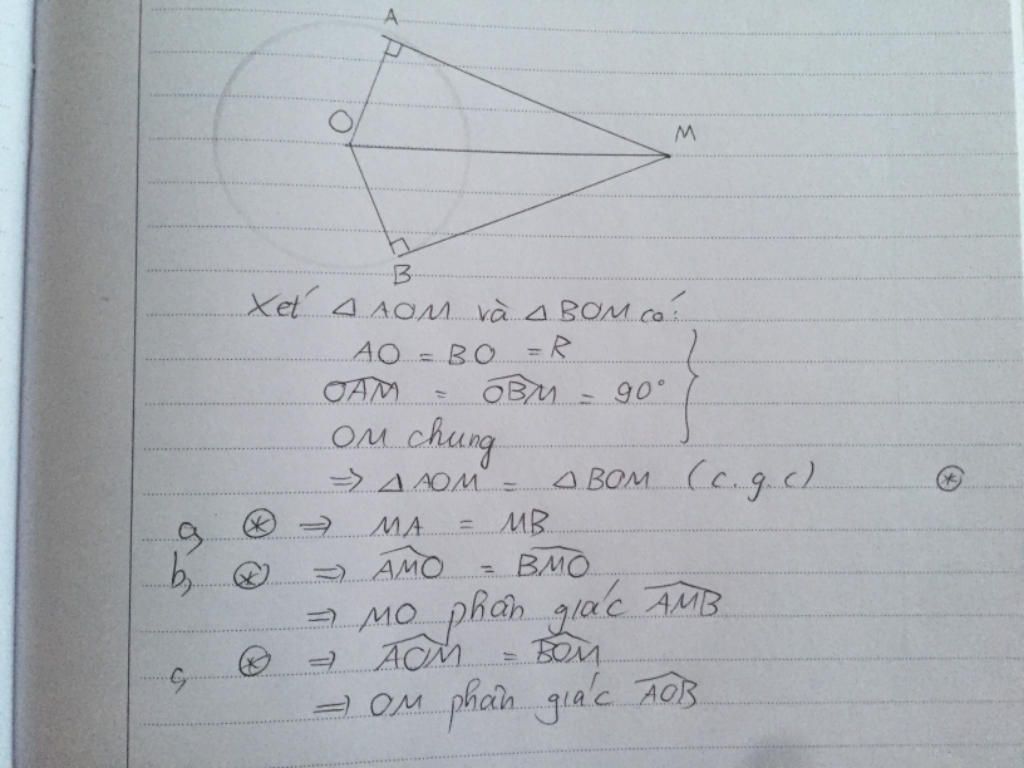 A
O
M
B
Xét △AOM và △BOM có:
AO = BO = R
$\widehat{OAM}$ = $\widehat{OBM}$ = 90°
OM chung
⇒ △AOM = △BOM (c.g.c) ⊛
a, ⊛ ⇒ MA = MB
b, ⊛ ⇒ $\widehat{AMO}$ = $\widehat{BMO}$
⇒ MO phân giác $\widehat{AMB}$
c, ⊛ ⇒ $\widehat{AOM}$ = $\widehat{BOM}$
⇒ OM phân giác $\widehat{AOB}$